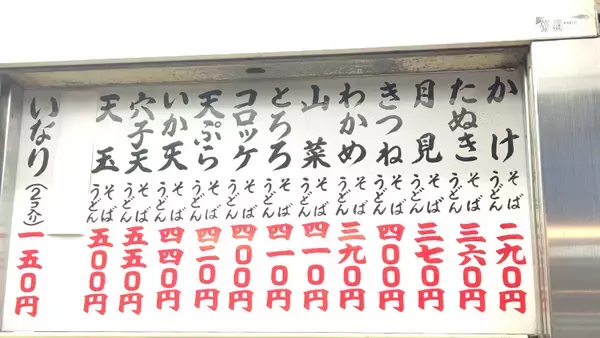 かけ そば うどん 二九〇円
たぬき そば うどん 三六〇円
月見 そば うどん 三七〇円
きつね そば うどん 四〇〇円
わかめ そば うどん 三九〇円
山菜 そば うどん 四一〇円
とろろ そば うどん 四一〇円
コロッケ そば うどん 四〇〇円
天ぷら そば うどん 四二〇円
いか天 そば うどん 四四〇円
穴子天 そば うどん 五五〇円
天玉 そば うどん 五〇〇円
いなり(2コ入) 一五〇円